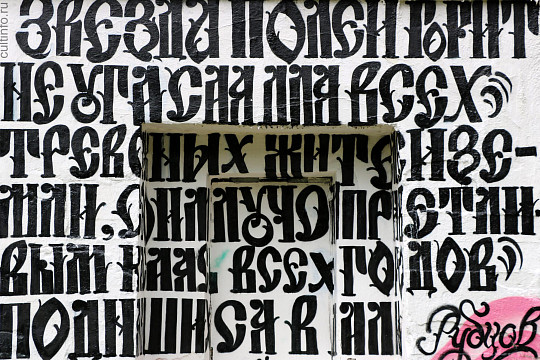 cultinfo.ru
ЗВЕЗДА ПОЛЕЙ ГОРИТ
НЕ УГАСАЯ ДЛЯ ВСЕХ
ТРЕВОЖНЫХ ЖИТЕЛЕЙ ЗЕ-
МЛИ, СВОИМ ЛУЧОМ ПРИВЕТЛИ
ВЫМ КАСАЯСЬ ВСЕХ ГОРОДОВ
ПОДНЯВШИХСЯ ВДАЛИ
Рубцов